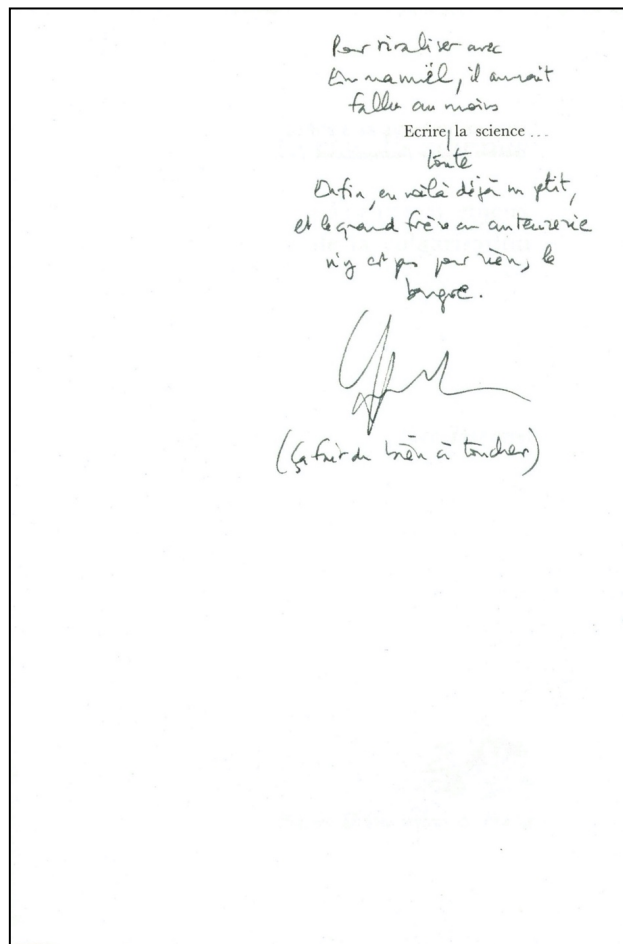 Pour rivaliser avec
Emmanuel, il aurait
fallu au moins
Ecrire la science ...
toute
Enfin, en voilà déjà un ptit,
et le grand frère en auteurerie
n'y est pas pour rien, le
bougre.
(ça fait du bien à toucher)